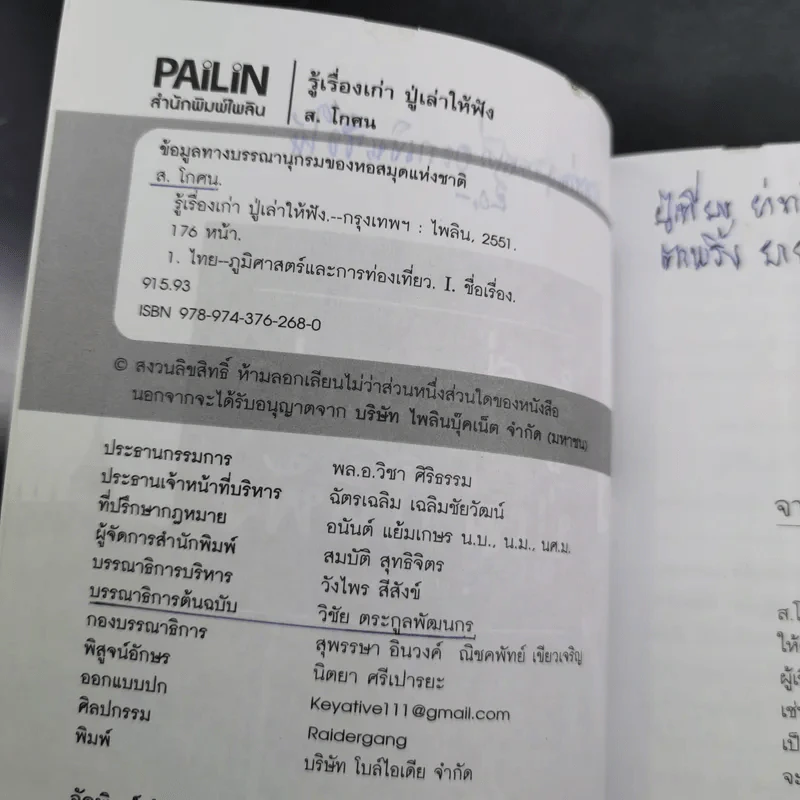 PAiLiN
สำนักพิมพ์ไพลิน
รู้เรื่องเก่า ปู่เล่าให้ฟัง
ส. โกศน
ข้อมูลทางบรรณานุกรมของหอสมุดแห่งชาติ
ส. โกศน.
รู้เรื่องเก่า ปู่เล่าให้ฟัง.--กรุงเทพฯ : ไพลิน, 2551.
176 หน้า.
1. ไทย--ภูมิศาสตร์และการท่องเที่ยว. I. ชื่อเรื่อง.
915.93
ISBN 978-974-376-268-0
© สงวนลิขสิทธิ์ ห้ามลอกเลียนไม่ว่าส่วนหนึ่งส่วนใดของหนังสือ
นอกจากจะได้รับอนุญาตจาก บริษัท ไพลินบุ๊คเน็ต จำกัด (มหาชน)
ประธานกรรมการ พล.อ.วิชา ศิริธรรม
ประธานเจ้าหน้าที่บริหาร ฉัตรเฉลิม เฉลิมชัยวัฒน์
ที่ปรึกษากฎหมาย อนันต์ แย้มเกษร น.บ., น.ม., นศ.ม.
ผู้จัดการสำนักพิมพ์ สมบัติ สุทธิจิตร
บรรณาธิการบริหาร วังไพร สีสังข์
บรรณาธิการต้นฉบับ วิชัย ตระกูลพัฒนกร
กองบรรณาธิการ สุพรรษา อินวงศ์ ณิชคพัทย์ เขียวเจริญ
พิสูจน์อักษร นิตยา ศรีเปารยะ
ออกแบบปก Keyative111@gmail.com
ศิลปกรรม Raidergang
พิมพ์ บริษัท โบล์ไอเดีย จำกัด
จา
ส.โ
ให้
ผู้เ
เช่
เป็
จะ